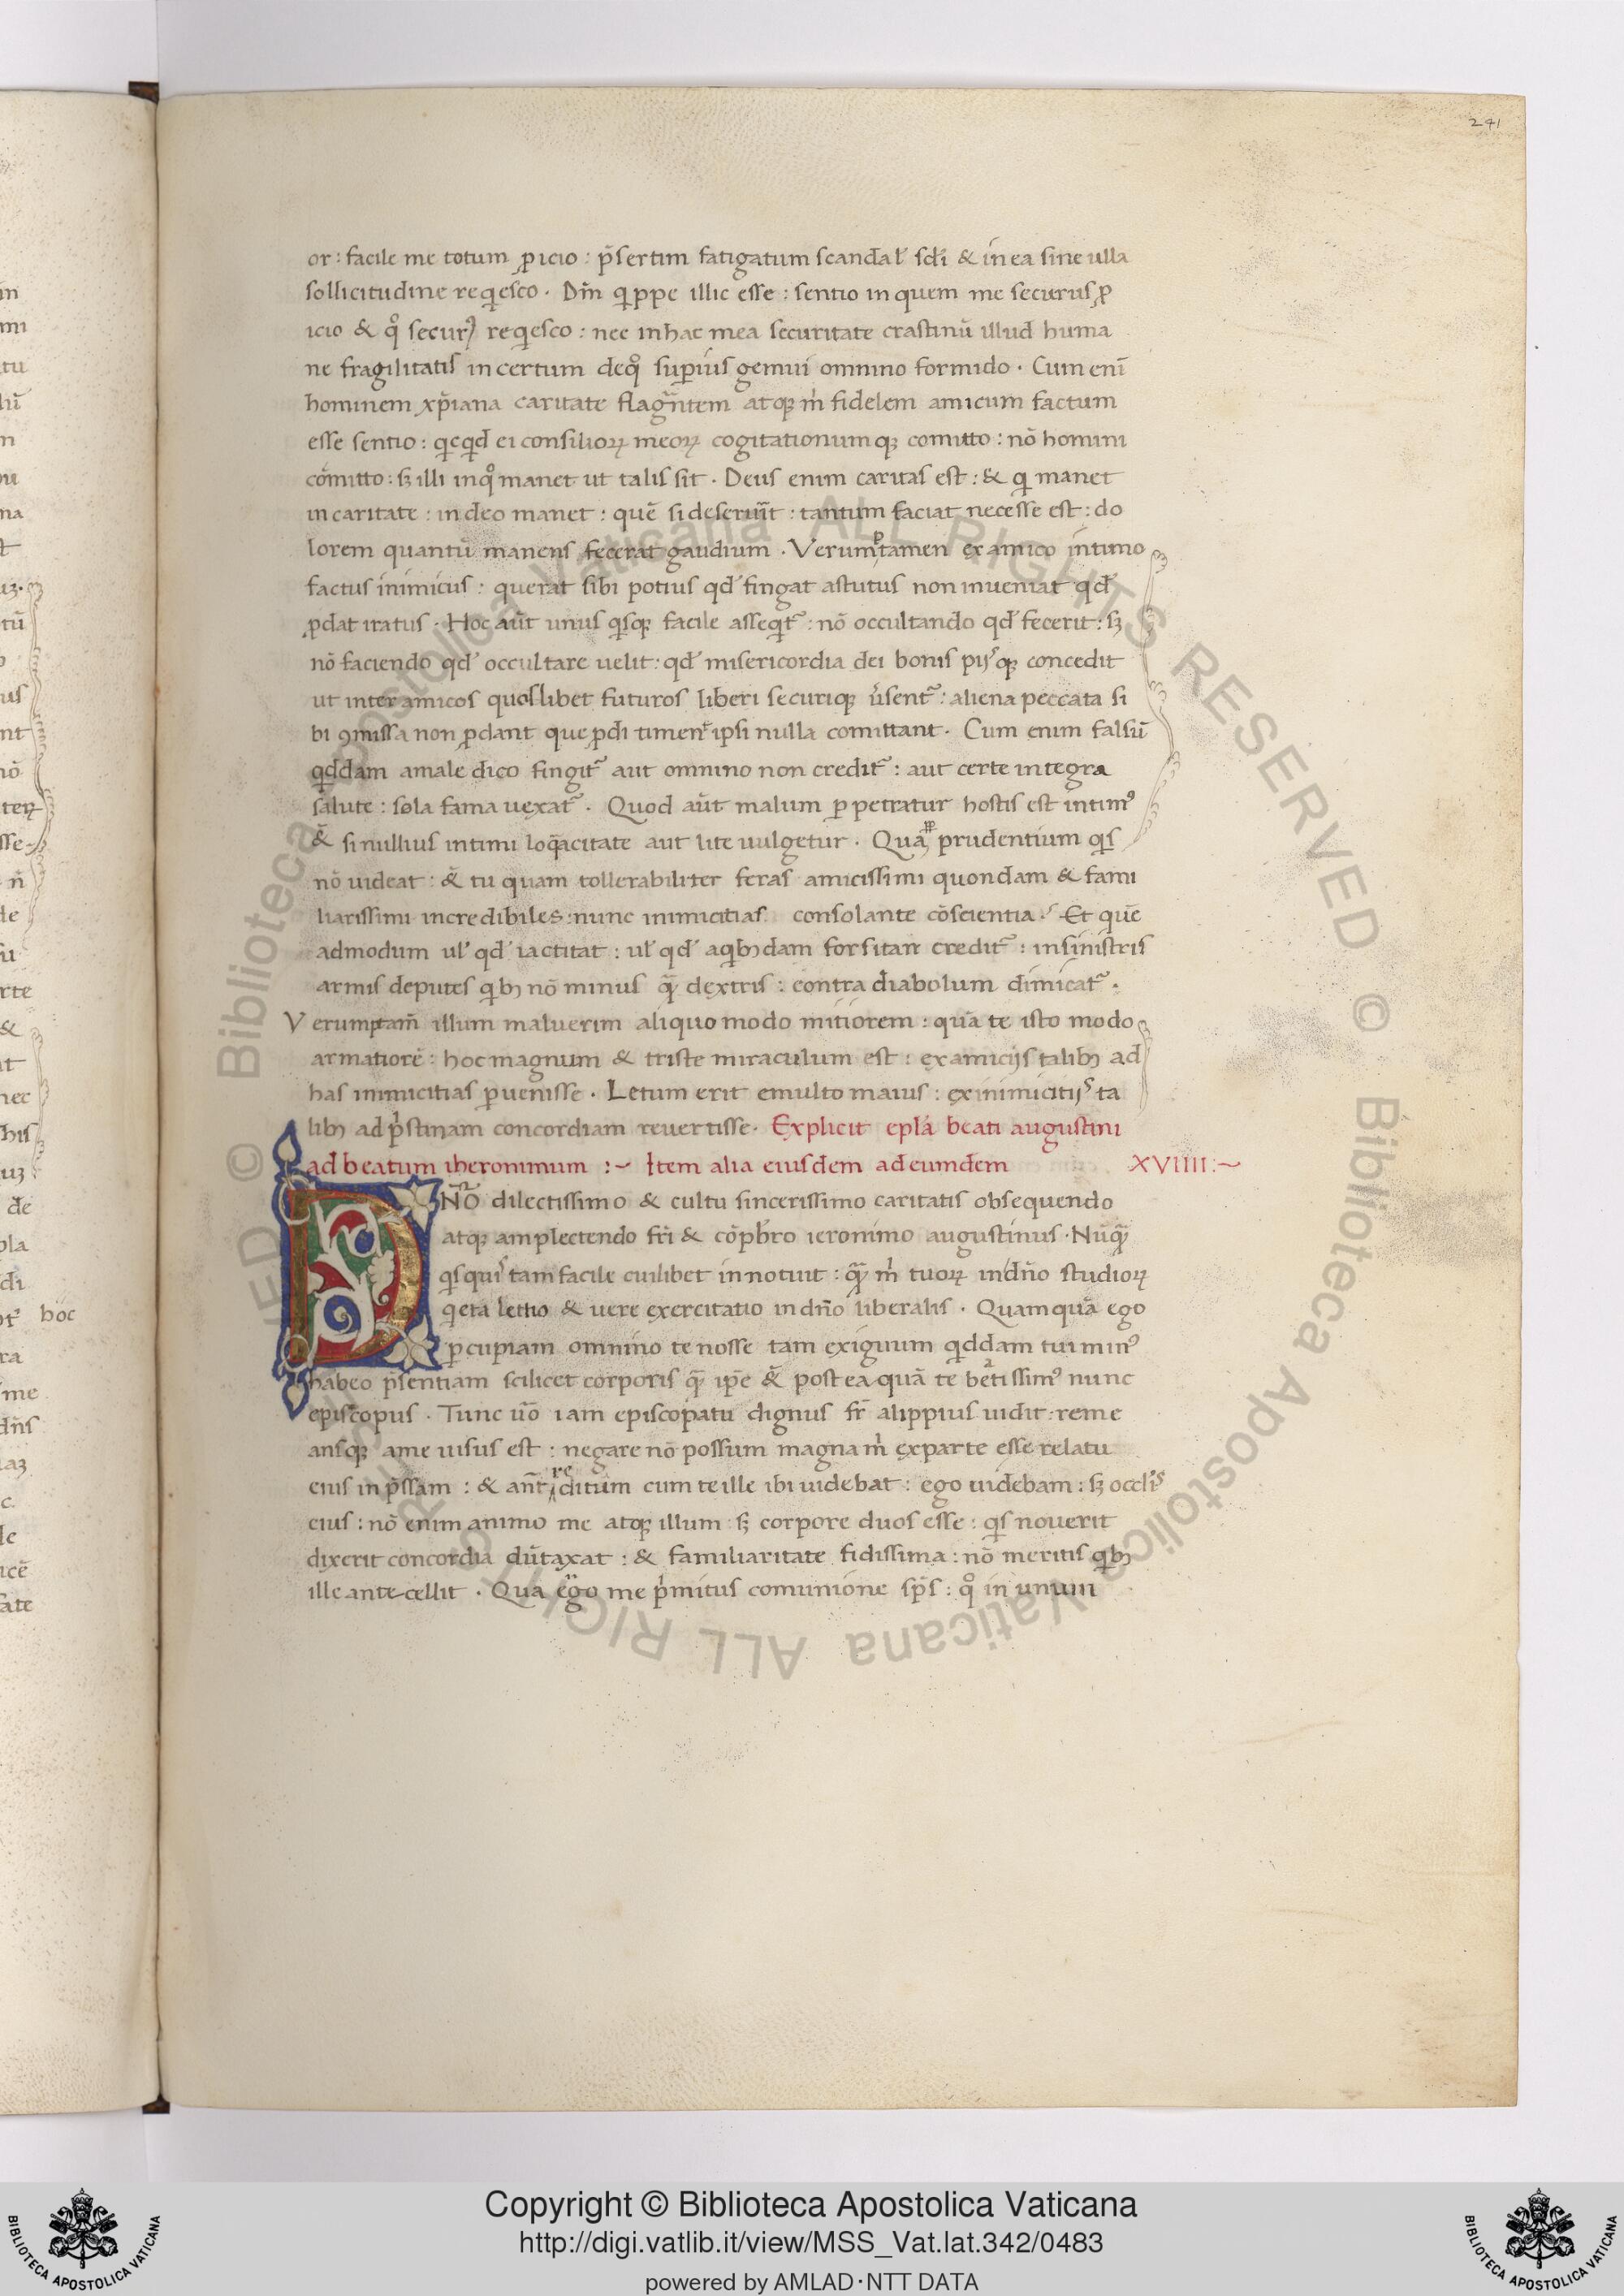 241
or : facile me totum ꝓicio : p̄sertim fatigatum scandal' scl̄i & in ea sine ulla
sollicitudine reqͥesco . Dm̄ qͥppe illic esse : sentio in quem me securus ꝓ
icio & qͦ securꝰ reqͥesco : nec in hac mea securitate crastinū illud huma
ne fragilitatis in certum de qͦ suꝑius gemui omnino formido . Cum enī
hominem xp̄iana caritate flagᷓntem atqꝫ m̍ fidelem amicum factum
esse sentio : qͥcqͥd ei consilioꝝ meoꝝ cogitationumqꝫ comitto : nō homini
cōmitto : sꝫ illi in qͦ manet ut talis sit . Deus enim caritas est : & qͥ manet
in caritate : in deo manet : quē si deseruīt : tantum faciat necesse est : do
lorem quantū manens fecerat gaudium . Verumptamen ex amico intimo
factus inimicus : querat sibi potius qd' fingat astutus non inueniat qd'
ꝓdat iratus . Hoc aūt unus qͥsqꝫ facile asseqͥt᷑ : nō occultando qd' fecerit : sꝫ
nō faciendo qd' occultare uelit : qd' misericordia dei bonis pijsqꝫ concedit
ut inter amicos quoslibet futuros liberi securiqꝫ u̍sent᷑ : aliena peccata si
bi ꝯmissa non ꝓdant que ꝓdi timent᷑ ipsi nulla comittant . Cum enim falsū
qͥddam a maledico fingit᷑ aut omnino non credit᷑ : aut certe integra
salute : sola fama uexat᷑ . Quod aūt malum ꝑpetratur hostis est intimꝰ
& si nullius intimi loqᷓcitate aut lite uulgetur . Qua ꝓpr prudentium qͥs
nō uideat : & tu quam tollerabiliter feras amicissimi quondam & fami
liarissimi incredibiles : nunc inimicitias consolante cōscientia . Et quē
admodum ul' qd' iactitat : ul' qd' a qͥbꝫdam forsitan credit᷑ : in sinistris
armis deputes qͥbꝫ nō minus qᷓ dextris : contra diabolum dimicat᷑ .
Verumptam̄ illum maluerim aliquo modo mitiorem : quā te isto modo
armatiorē : hoc magnum & triste miraculum est : ex amicijs talibꝫ ad
has inimicitias ꝑuenisse . Letum erit e multo maius : ex inimicitijs ta
libꝫ ad pͥstinam concordiam reuertisse . Explicit epl̄a beati augustini
ad beatum iheronimum :~ Item alia eiusdem ad eumdem XVIIII :~
DN̄O dilectissimo & cultu sincerissimo caritatis obsequendo
atqꝫ amplectendo frī & cōpb̄ro ieronimo augustinus . Nūqᷓ
qͥsquis tam facile cuilibet innotuit : qᷓ m̍ tuoꝝ in dn̄o studioꝝ
qͥeta letitio & uere exercitatio in dn̄o liberalis . Quamquā ego
ꝑcupiam omnino te nosse tam exiguum qͥddam tui minꝰ
habeo p̄sentiam scilicet corporis qᷓ ip̄e & postea quā te beātissimꝰ nunc
episcopus . Tunc u̅o iam episcopatu dignus fr̄ alippius uidit : reme
ansqꝫ a me uisus est : negare nō possum magna m̍ ex parte esse relatu
eius inp̄ssam : & ant̄ reditum cum te ille ibi uidebat : ego uidebam : sꝫ occl̍is
eius : nō enim animo me atqꝫ illum sꝫ corpore duos esse : qͥs nouerit
dixerit concordia dūtaxat : & familiaritate fidissima : nō meritis qͥbꝫ
ille antecellit . Qua ergo me pͥmitus comunione sp̄s : qͦ in unum
hoc
Copyright © Biblioteca Apostolica Vaticana
http://digi.vatlib.it/view/MSS_Vat.lat.342/0483
powered by AMLAD·NTT DATA
BIBLIOTECA APOSTOLICA VATICANA
BIBLIOTECA APOSTOLICA VATICANA